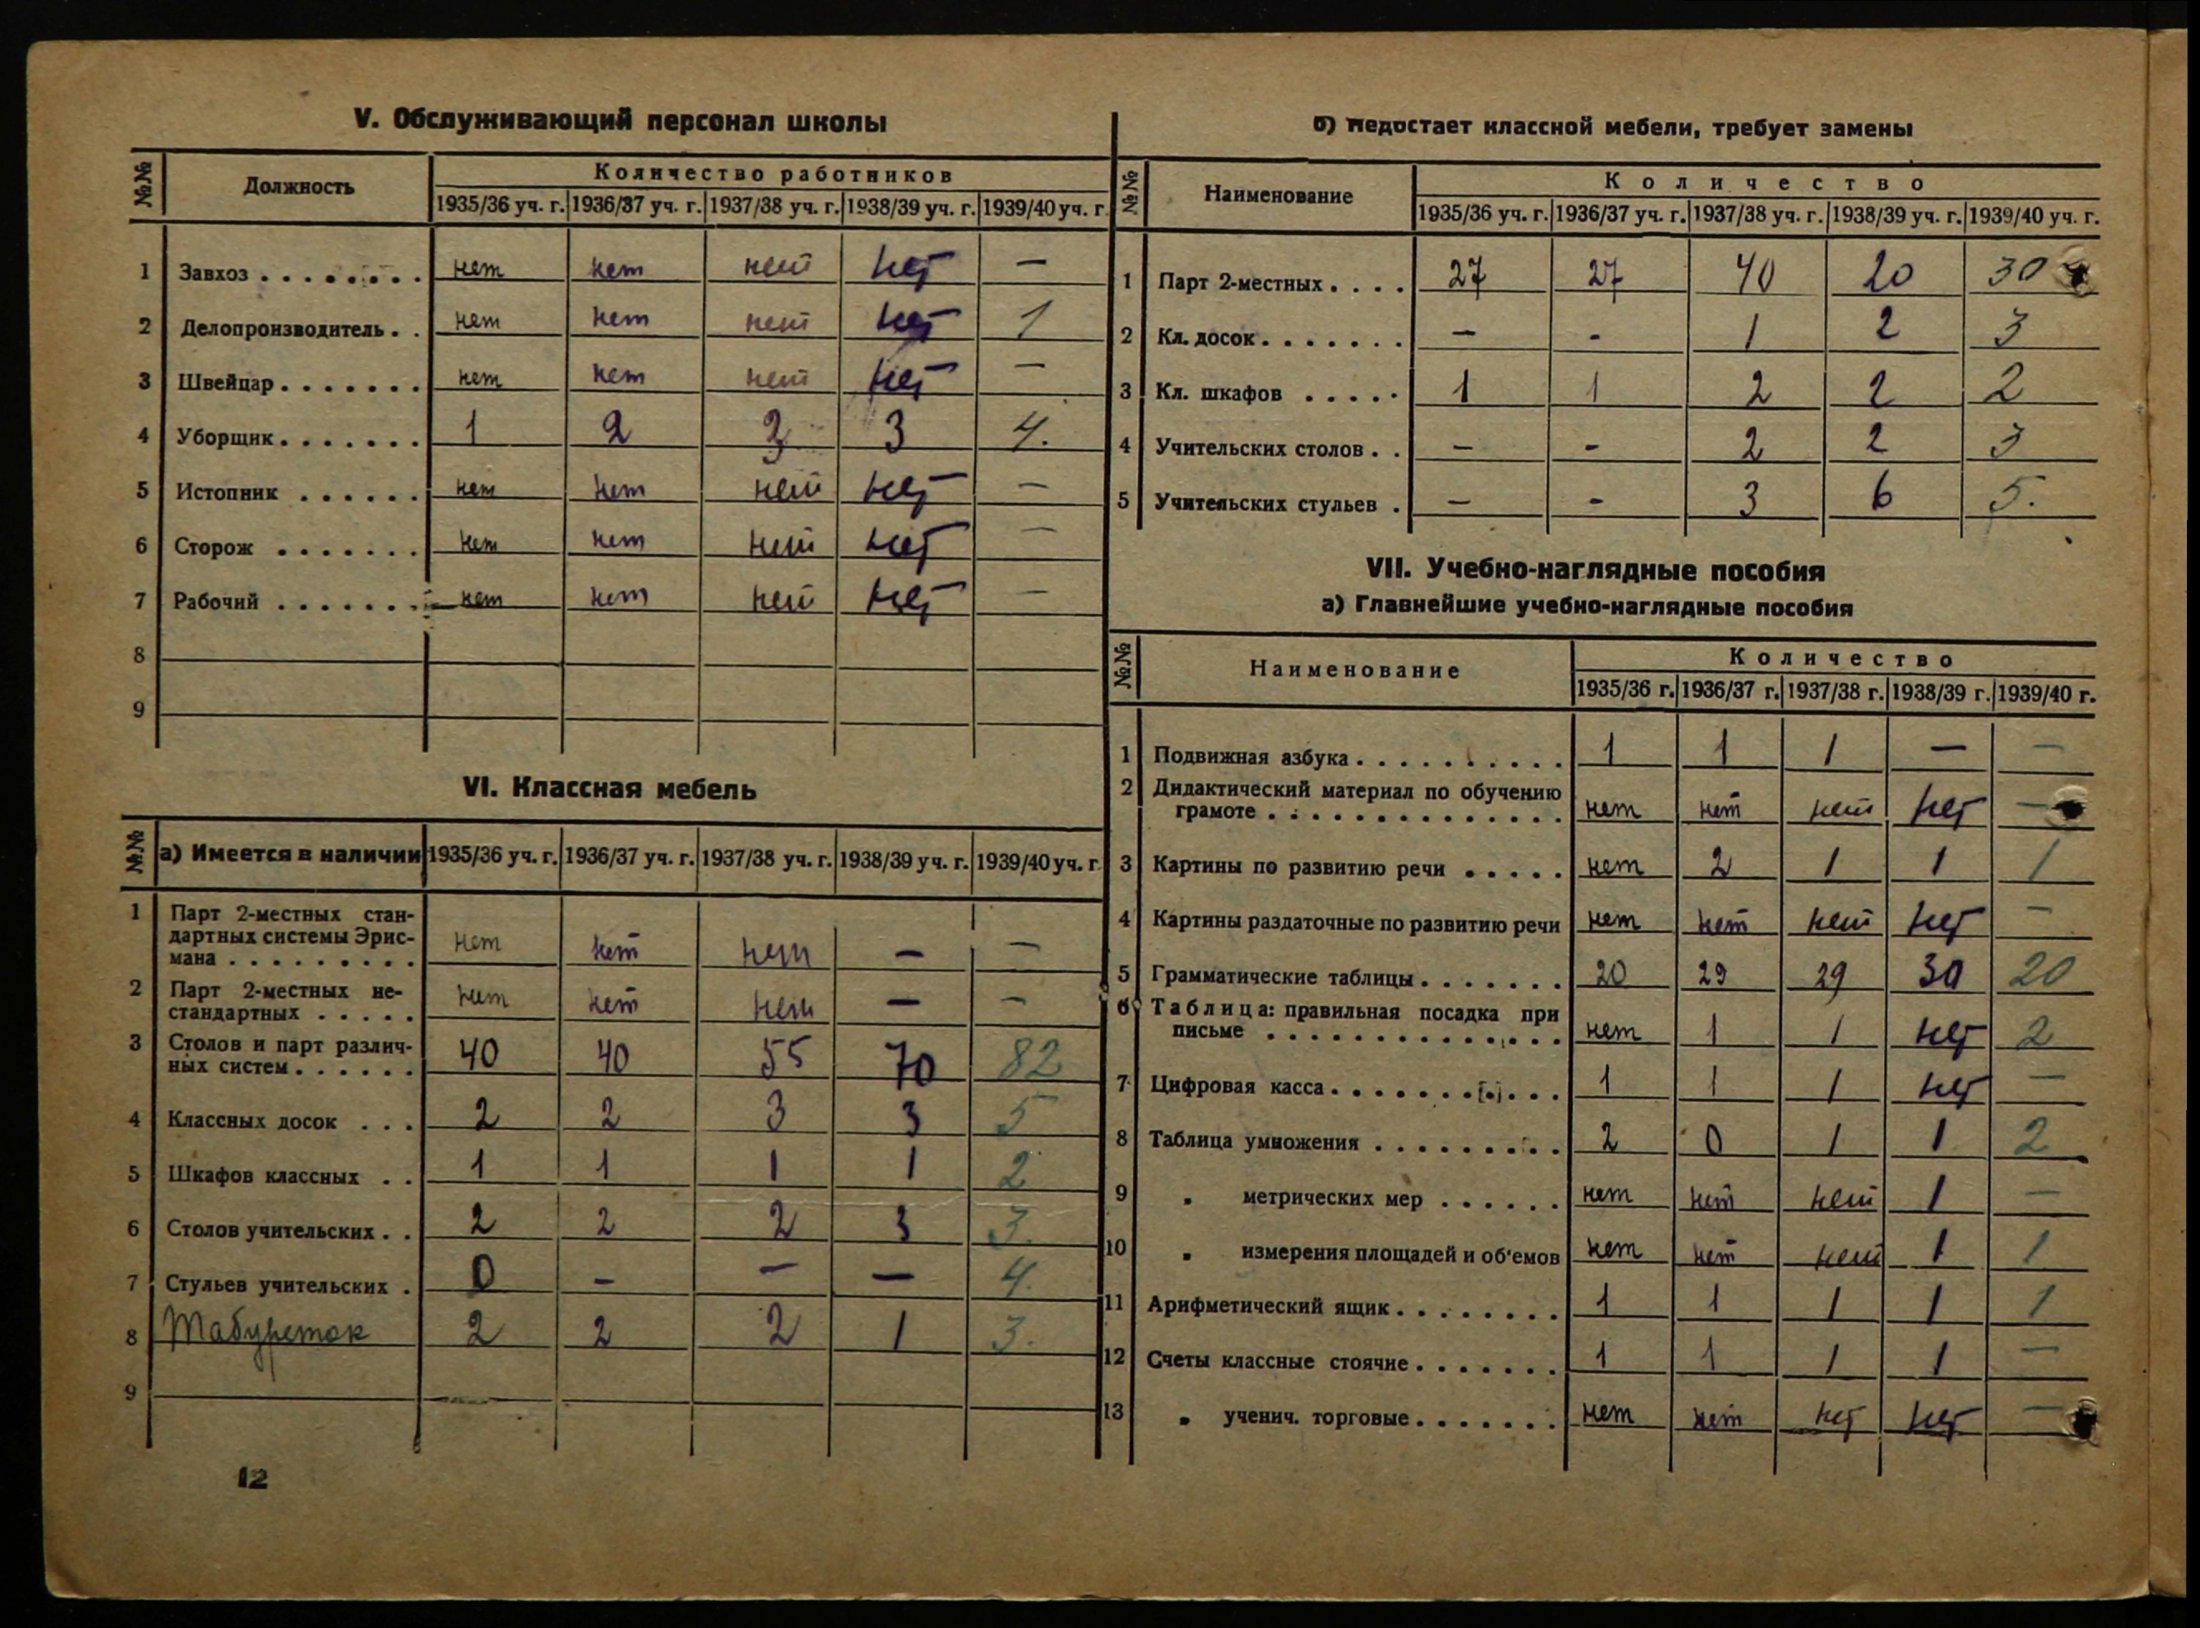 V. Обслуживающий персонал школы
№№ Должность Количество работников
1935/36 уч. г. 1936/37 уч. г. 1937/38 уч. г. 1938/39 уч. г. 1939/40 уч. г.
1 Завхоз нет нет нет нет —
2 Делопроизводитель нет нет нет нет 1
3 Швейцар нет нет нет нет —
4 Уборщик 1 2 3 4.
5 Истопник нет нет нет нет —
6 Сторож нет нет нет нет —
7 Рабочий нет нет нет нет —
8
9
VI. Классная мебель
№№ а) Имеется в наличии 1935/36 уч. г. 1936/37 уч. г. 1937/38 уч. г. 1938/39 уч. г. 1939/40 уч. г.
1 Парт 2-местных стан-
дартных системы Эрис-
мана нет нет нет — —
2 Парт 2-местных не-
стандартных нет нет нет — —
3 Столов и парт различ-
ных систем 40 40 55 70 82
4 Классных досок 2 2 3 3 5
5 Шкафов классных 1 1 1 1 2
6 Столов учительских 2 2 2 3 3.
7 Стульев учительских 0 — — — 4.
8 Табуреток 2 2 2 1 3.
9
12
б) Недостает классной мебели, требует замены
№№ Наименование Количество
1935/36 уч. г. 1936/37 уч. г. 1937/38 уч. г. 1938/39 уч. г. 1939/40 уч. г.
1 Парт 2-местных 27 27 40 20 30
2 Кл. досок — - 1 2 3
3 Кл. шкафов 1 1 2 2 2
4 Учительских столов — - 2 2 3
5 Учительских стульев — - 3 6 5.
VII. Учебно-наглядные пособия
а) Главнейшие учебно-наглядные пособия
№№ Наименование Количество
1935/36 г. 1936/37 г. 1937/38 г. 1938/39 г. 1939/40 г.
1 Подвижная азбука 1 1 1 — —
2 Дидактический материал по обучению
грамоте нет нет нет нет —
3 Картины по развитию речи нет 2 1 1 1
4 Картины раздаточные по развитию речи нет нет нет нет —
5 Грамматические таблицы 20 29 29 30 20
6 Таблица: правильная посадка при
письме нет 1 1 нет 2
7 Цифровая касса 1 1 1 нет —
8 Таблица умножения 2 0 1 1 2
9 „ метрических мер нет нет нет 1 —
10 „ измерения площадей и об'емов нет нет нет 1 1
11 Арифметический ящик 1 1 1 1 1
12 Счеты классные стоячие 1 1 1 1 —
13 „ ученич. торговые нет нет нет нет —